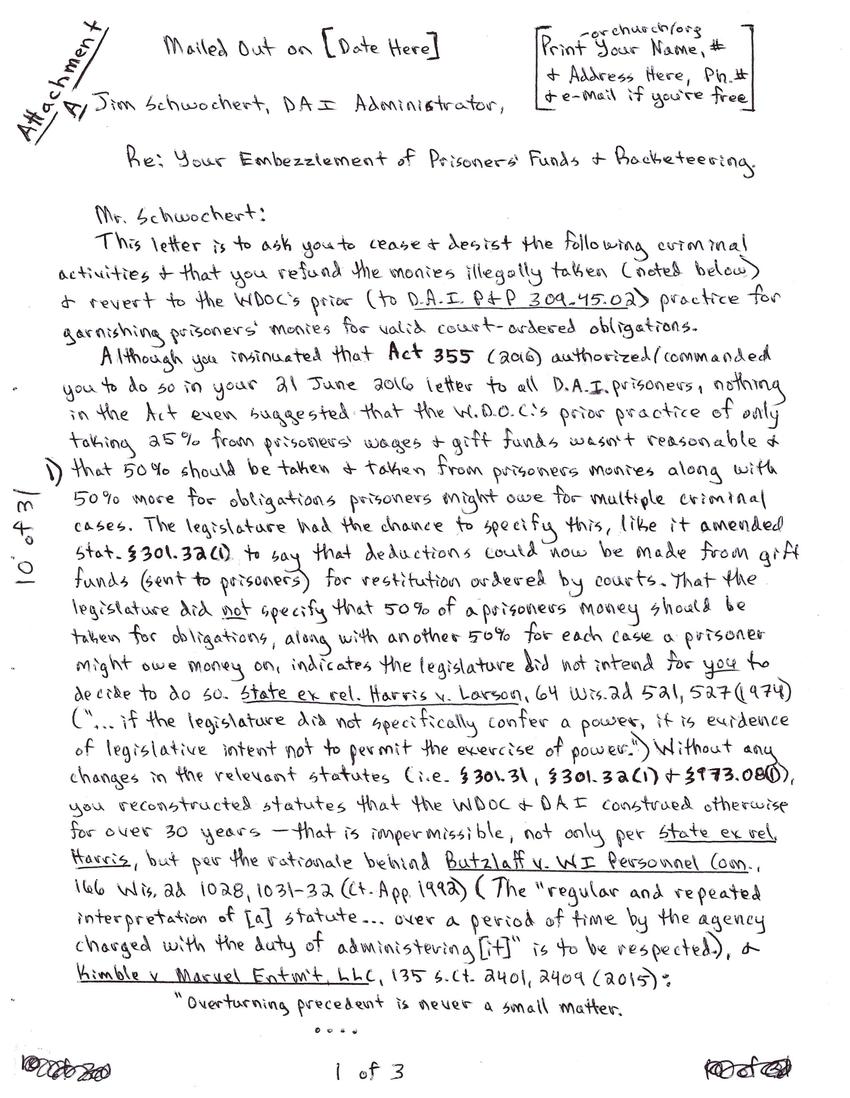 Attachment A
Mailed Out on [Date Here]
-or church/org
[Print Your Name, #
+ Address Here, Ph.#
+ e-mail if you're free]
Jim Schwochert, DAI Administrator,
Re: Your Embezzlement of Prisoners' Funds + Racketeering.
Mr. Schwochert:
This letter is to ask you to cease + desist the following criminal
activities + that you refund the monies illegally taken (noted below)
+ revert to the WDOC's prior (to D.A.I. P+P 309.45.02) practice for
garnishing prisoners' monies for valid court-ordered obligations.
Although you insinuated that Act 355 (2016) authorized/commanded
you to do so in your 21 June 2016 letter to all D.A.I. prisoners, nothing
in the Act even suggested that the W.D.O.C.'s prior practice of only
taking 25% from prisoners' wages + gift funds wasn't reasonable +
1) that 50% should be taken + taken from prisoners monies along with
50% more for obligations prisoners might owe for multiple criminal
cases. The legislature had the chance to specify this, like it amended
Stat. §301.32(1) to say that deductions could now be made from gift
funds (sent to prisoners) for restitution ordered by courts. That the
legislature did not specify that 50% of a prisoners money should be
taken for obligations, along with another 50% for each case a prisoner
might owe money on, indicates the legislature did not intend for you to
decide to do so. State ex rel. Harris v. Larson, 64 Wis.2d 521, 527 (1974)
("... if the legislature did not specifically confer a power, it is evidence
of legislative intent not to permit the exercise of power.") Without any
changes in the relevant statutes (i.e. §301.31, §301.32(1) + §973.08(1),
you reconstructed statutes that the WDOC + DAI construed otherwise
for over 30 years — that is impermissible, not only per State ex rel.
Harris, but per the rationale behind Butzlaff v. WI Personnel Com.,
166 Wis. 2d 1028, 1031-32 (Ct. App. 1992) (The "regular and repeated
interpretation of [a] statute... over a period of time by the agency
charged with the duty of administering [it]" is to be respected), +
Kimble v Marvel Entm't, LLC, 135 S.Ct. 2401, 2409 (2015):
"Overturning precedent is never a small matter.
....
10 of 31
1 of 3